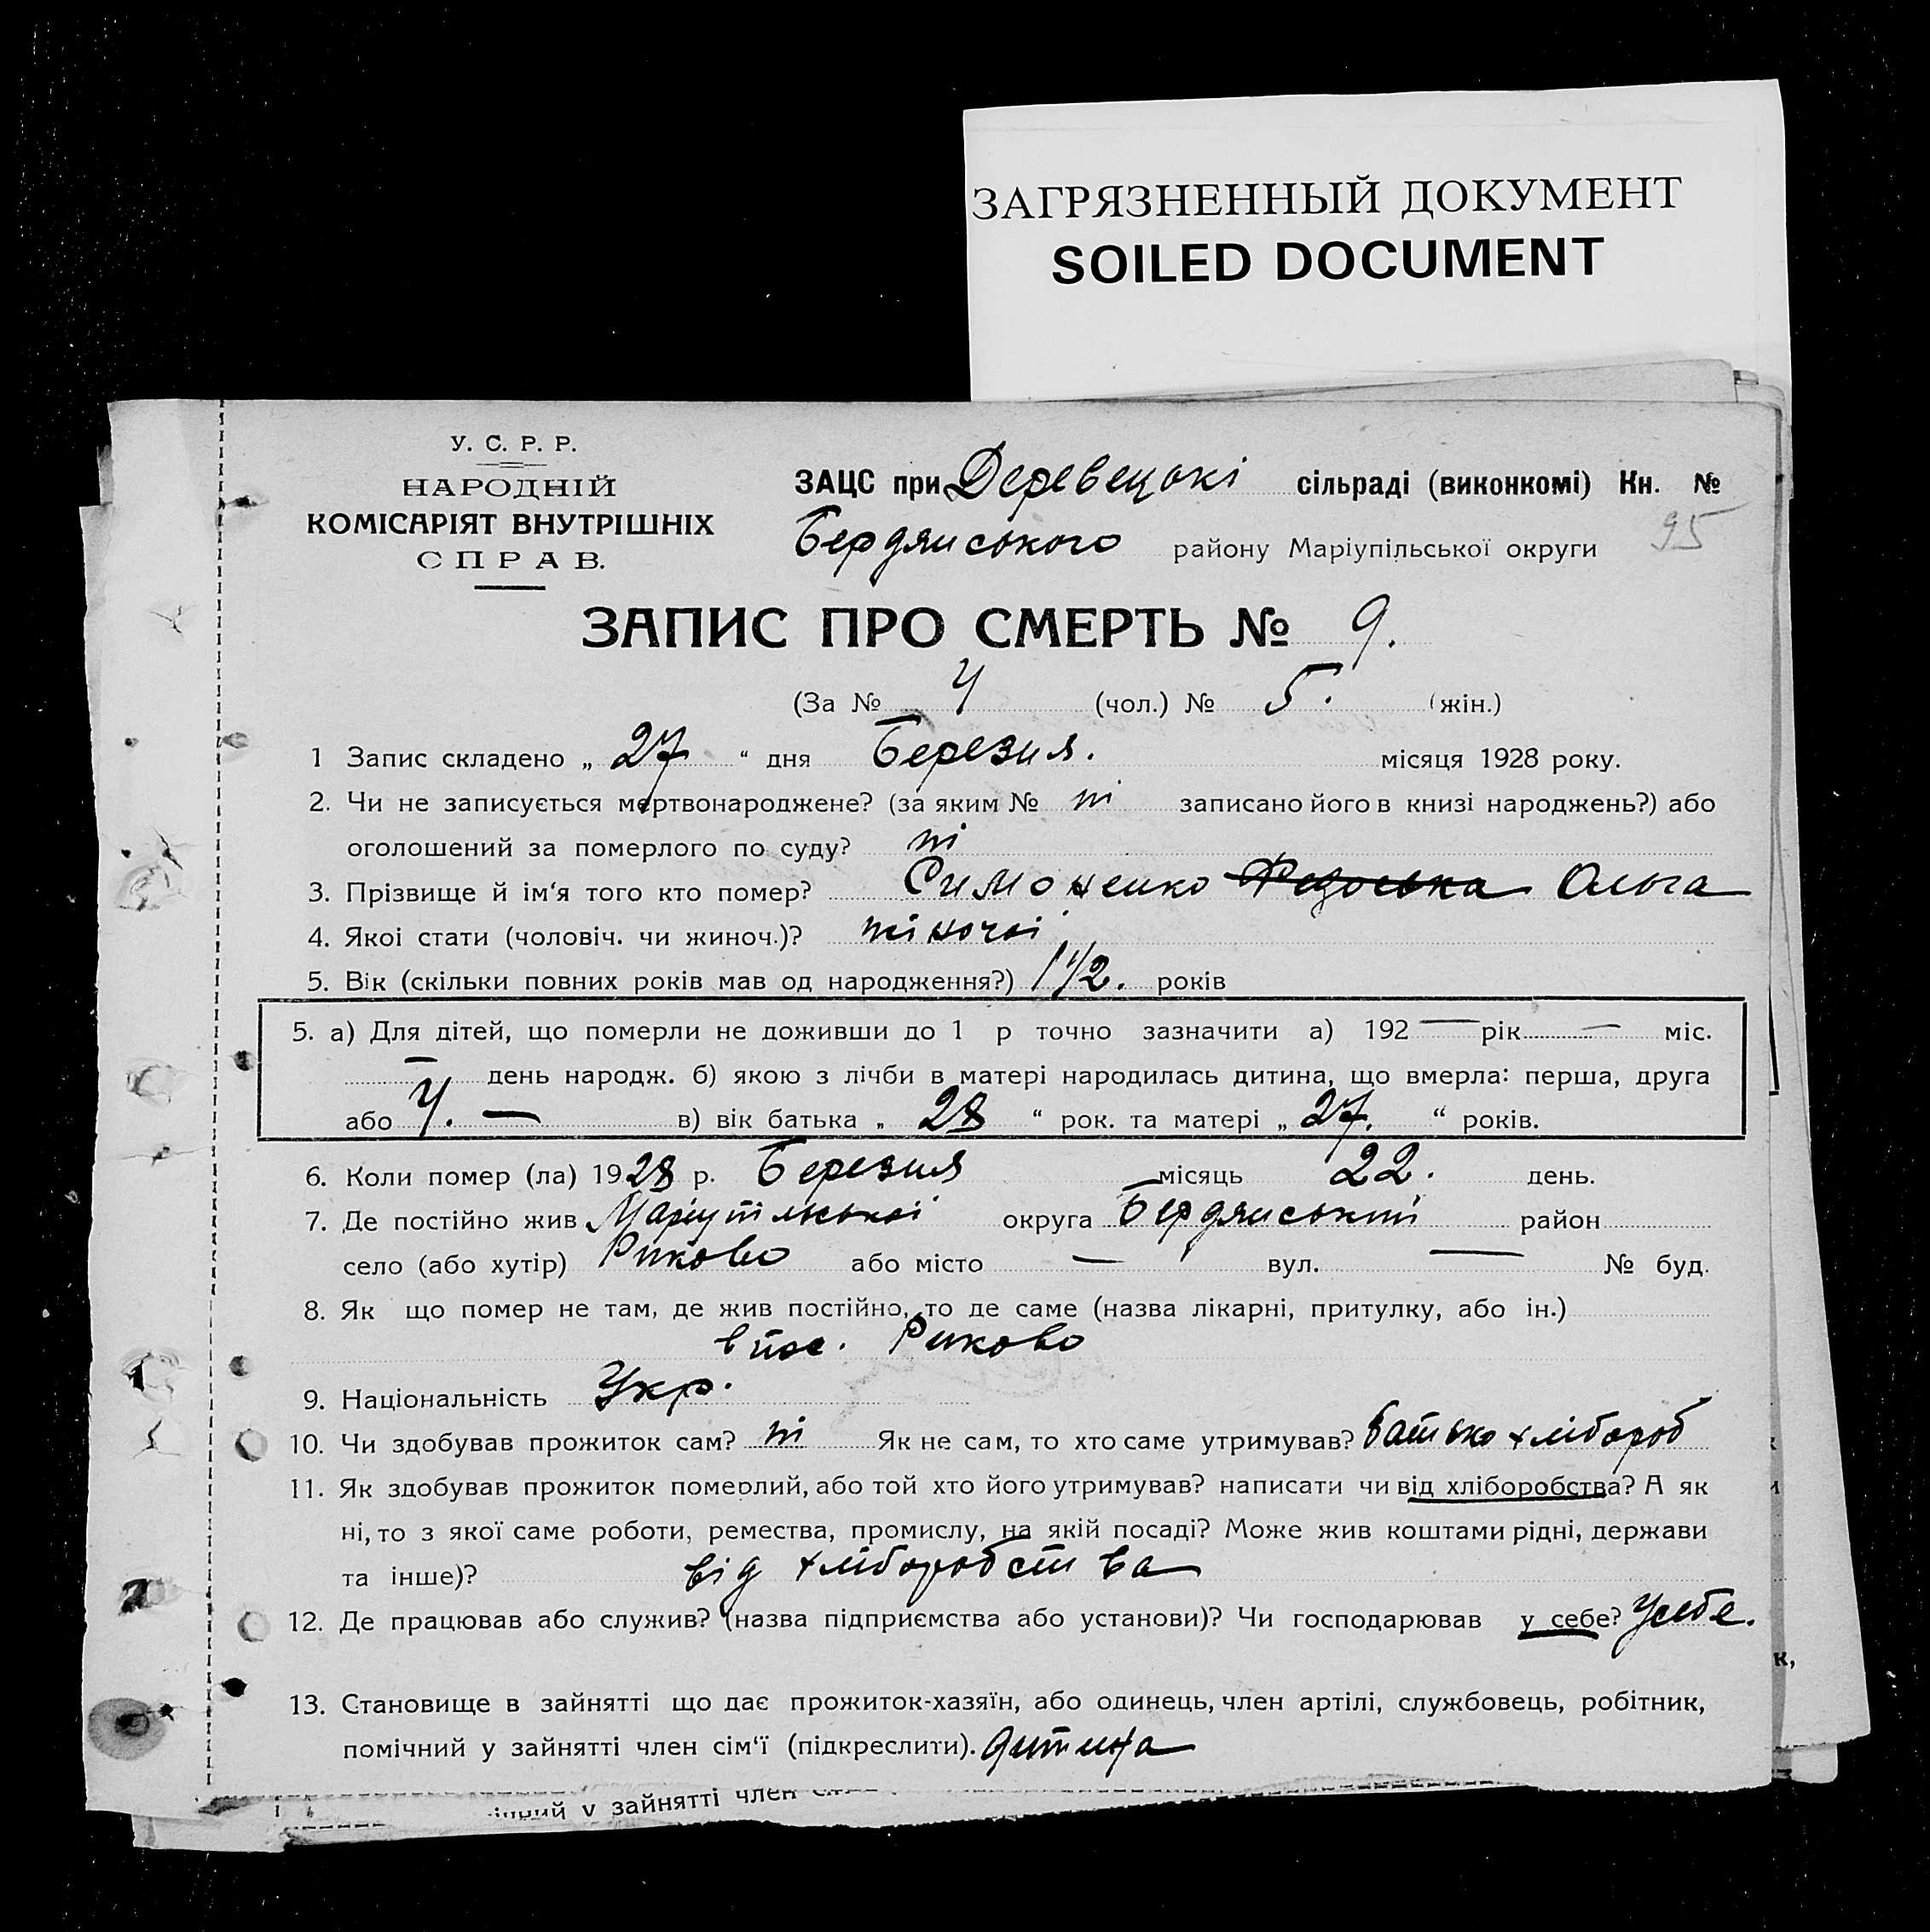 ЗАГРЯЗНЕННЫЙ ДОКУМЕНТ
SOILED DOCUMENT
У. С. Р. Р.
НАРОДНІЙ
КОМІСАРІЯТ ВНУТРІШНІХ
СПРАВ.
ЗАЦС при Деревецокі сільраді (виконкомі) Кн. №
95
Бердянського району Маріупільської округи
ЗАПИС ПРО СМЕРТЬ № 9.
(За № 4 (чол.) № 5. (жін.)
1 Запис складено „ 27 “ дня Березня. місяця 1928 року.
2. Чи не записується мертвонароджене? (за яким № ні записано його в книзі народжень?) або
оголошений за померлого по суду? ні
3. Прізвище й ім‘я того кто помер? Симоненко Ольга
4. Якоі стати (чоловіч. чи жиноч.)? жіночоі
5. Вік (скільки повних років мав од народження?) 1 1/2. років
5. а) Для дітей, що померли не доживши до 1 р точно зазначити а) 192 — рік — міс.
— день народж. б) якою з лічби в матері народилась дитина, що вмерла: перша, друга
або 4. — в) вік батька „ 28 “ рок. та матері „ 27. “ років.
6. Коли помер (ла) 1928 р. Березня місяць 22. день.
7. Де постійно жив Маріупільськоі округа Бердянський район
село (або хутір) Риково або місто — вул. — № буд.
8. Як що помер не там, де жив постійно, то де саме (назва лікарні, притулку, або ін.)
Риково
9. Національність Укр.
10. Чи здобував прожиток сам? ні Як не сам, то хто саме утримував? батько хлібороб
11. Як здобував прожиток померлий, або той хто його утримував? написати чи від хліборобства? А як
ні, то з якої саме роботи, ремества, промислу, на якій посаді? Може жив коштами рідні, держави
та інше)? від хліборобства
12. Де працював або служив? (назва підприємства або установи)? Чи господарював у себе? У себе.
13. Становище в зайнятті що дає прожиток-хазяїн, або одинець, член артілі, службовець, робітник,
помічний у зайнятті член сім‘ї (підкреслити). дитина
у зайнятті член